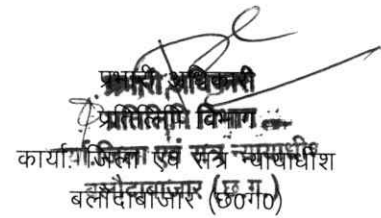 प्रभारी अधिकारी
प्रतिलिपि विभाग
कार्या. जिला एवं सत्र न्यायाधीश
बलौदाबाजार (छ०ग०)